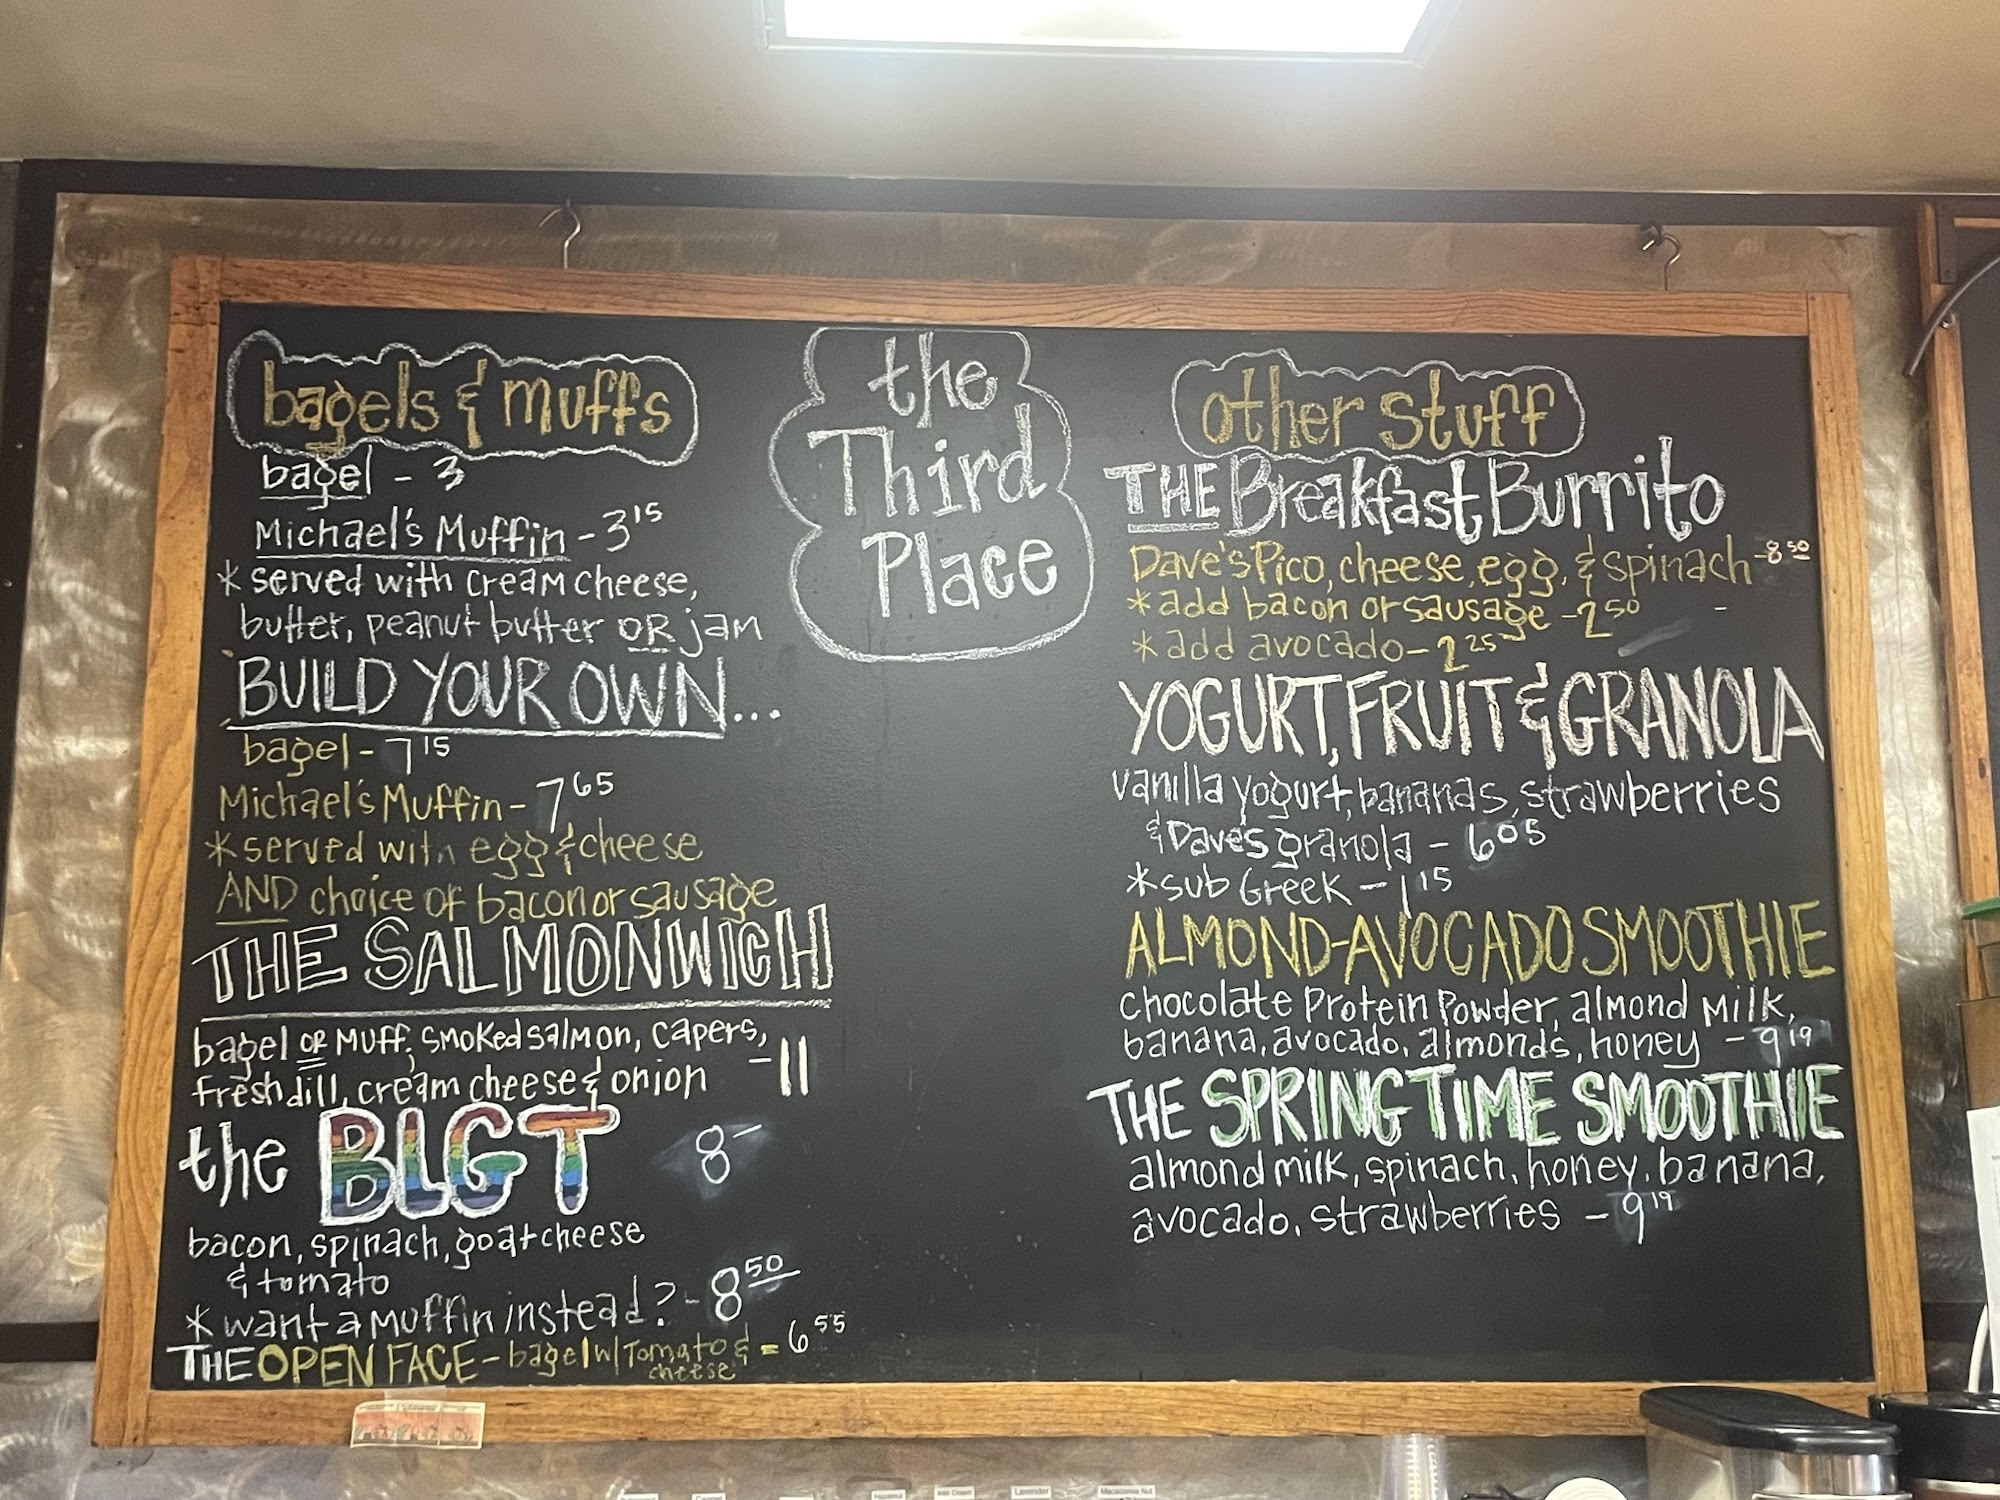 bagels & muffs
bagel - 3
Michael's Muffin - 3 15
* served with cream cheese,
butter, peanut butter OR jam
BUILD YOUR OWN...
bagel - 7 15
Michael's Muffin - 7 65
* served with egg & cheese
AND choice of bacon or sausage
THE SALMONWICH
bagel OR MUFF, smoked salmon, capers,
fresh dill, cream cheese & onion - 11
the BLGT 8 -
bacon, spinach, goat cheese
& tomato
* want a muffin instead? - 8 50
THE OPEN FACE - bagel w/ Tomato & cheese = 6 55
the
Third
Place
other stuff
THE Breakfast Burrito
Dave's Pico, cheese, egg, & spinach - 8 50
* add bacon or sausage - 2 50
* add avocado - 2 25
YOGURT, FRUIT & GRANOLA
vanilla yogurt, bananas, strawberries
& Dave's granola - 6 05
* sub Greek - 1 15
ALMOND-AVOCADO SMOOTHIE
chocolate Protein Powder, almond milk,
banana, avocado, almonds, honey - 9 19
THE SPRINGTIME SMOOTHIE
almond milk, spinach, honey, banana,
avocado, strawberries - 9 19
Hazelnut
Irish Cream
Lavender
Macadamia Nut